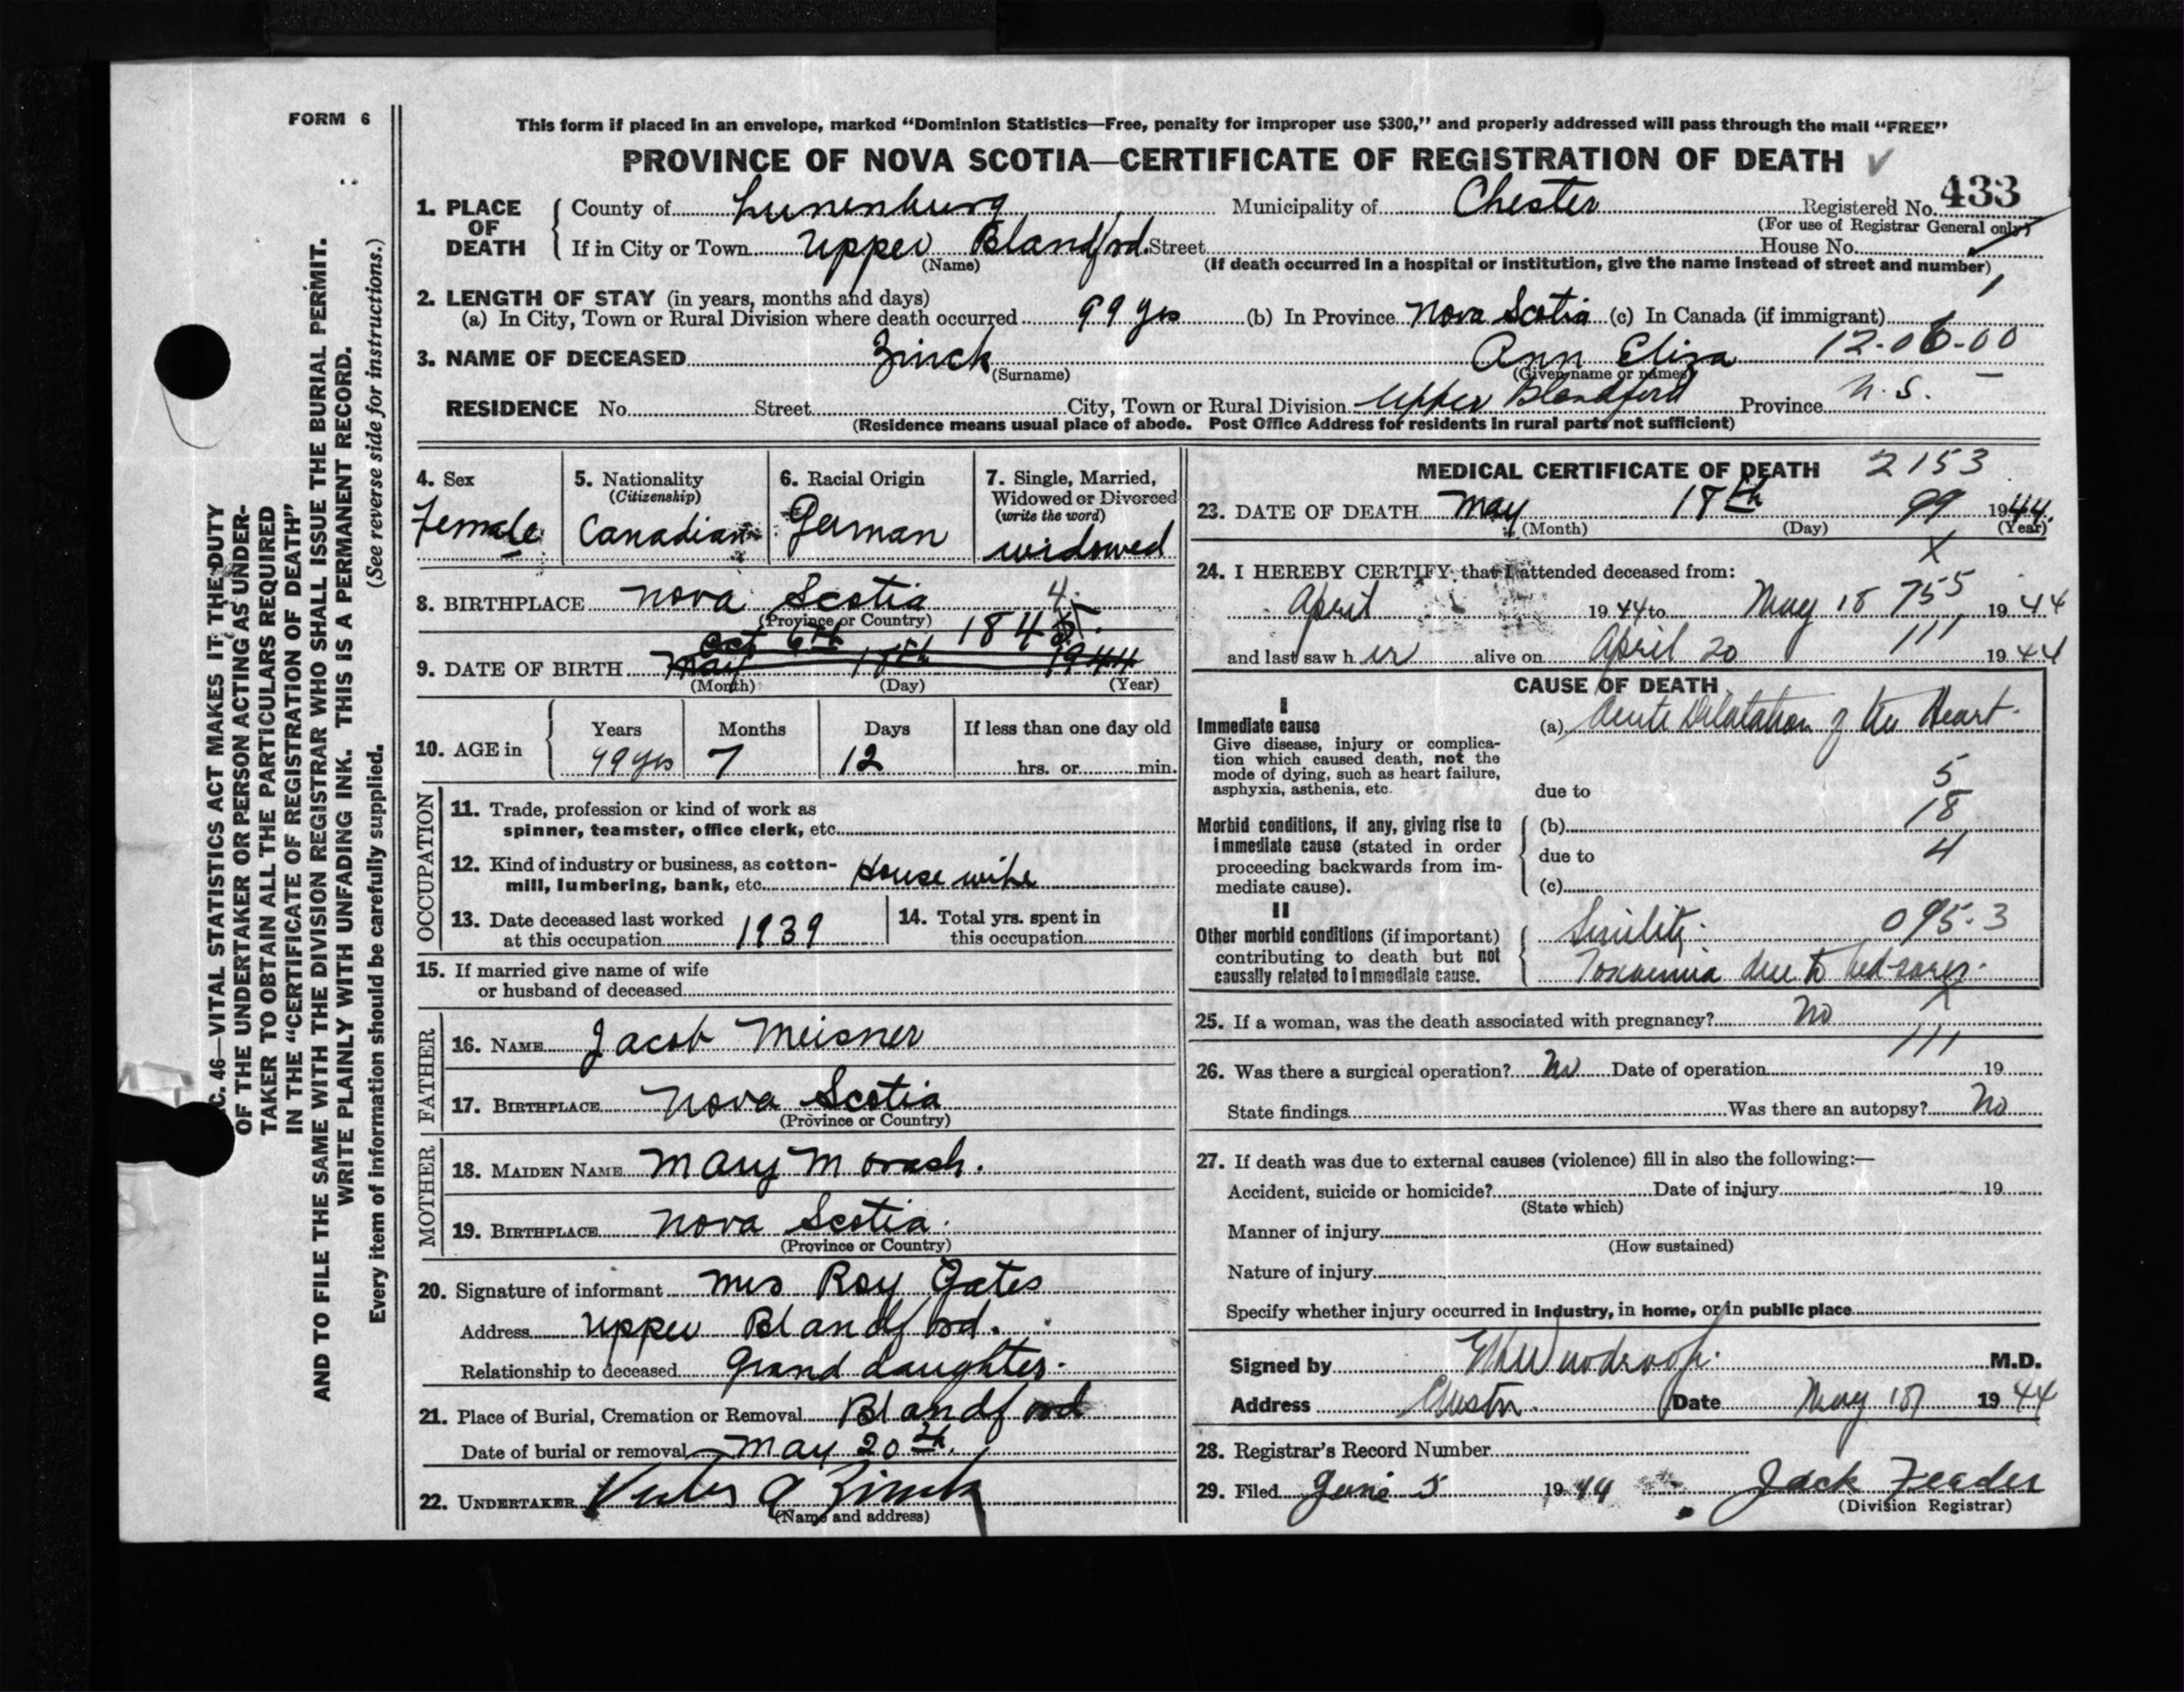 FORM 6
This form if placed in an envelope, marked "Dominion Statistics—Free, penalty for improper use $300," and properly addressed will pass through the mail "FREE"
PROVINCE OF NOVA SCOTIA—CERTIFICATE OF REGISTRATION OF DEATH
433
1. PLACE OF DEATH County of Lunenburg Municipality of Chester Registered No.
(For use of Registrar General only)
If in City or Town Upper Blandford Street House No.
(Name) (If death occurred in a hospital or institution, give the name instead of street and number)
2. LENGTH OF STAY (in years, months and days)
(a) In City, Town or Rural Division where death occurred 99 yrs (b) In Province Nova Scotia (c) In Canada (if immigrant)
3. NAME OF DECEASED Zinck Ann Eliza 12-06-00
(Surname) (Given name or names)
RESIDENCE No. Street City, Town or Rural Division Upper Blandford Province N.S.
(Residence means usual place of abode. Post Office Address for residents in rural parts not sufficient)
4. Sex
Female
5. Nationality
(Citizenship)
Canadian
6. Racial Origin
German
7. Single, Married,
Widowed or Divorced
(write the word)
widowed
8. BIRTHPLACE Nova Scotia
(Province or Country)
4
Oct 6th 1845
9. DATE OF BIRTH May 18th 1944
(Month) (Day) (Year)
10. AGE in Years Months Days If less than one day old
99 yrs 7 12 hrs. or min.
OCCUPATION
11. Trade, profession or kind of work as
spinner, teamster, office clerk, etc.
12. Kind of industry or business, as cotton-
mill, lumbering, bank, etc. House wife
13. Date deceased last worked
at this occupation 1939
14. Total yrs. spent in
this occupation
15. If married give name of wife
or husband of deceased
FATHER
16. NAME Jacob Meisner
17. BIRTHPLACE Nova Scotia
(Province or Country)
MOTHER
18. MAIDEN NAME Mary Morash.
19. BIRTHPLACE Nova Scotia.
(Province or Country)
20. Signature of informant Mrs Roy Gates
Address Upper Blandford.
Relationship to deceased Grand daughter.
21. Place of Burial, Cremation or Removal Blandford
Date of burial or removal May 20th.
22. UNDERTAKER A Zinck
(Name and address)
MEDICAL CERTIFICATE OF DEATH 2153
23. DATE OF DEATH May 18th 99 1944.
(Month) (Day) (Year)
X
24. I HEREBY CERTIFY that I attended deceased from:
April 1944 to May 18 755 1944
111
and last saw her alive on April 20 1944
CAUSE OF DEATH
I
Immediate cause
Give disease, injury or complica-
tion which caused death, not the
mode of dying, such as heart failure,
asphyxia, asthenia, etc.
(a) Acute Dilatation of the Heart.
5
due to
18
Morbid conditions, if any, giving rise to
immediate cause (stated in order
proceeding backwards from im-
mediate cause).
(b)
due to
4
(c)
II
Other morbid conditions (if important)
contributing to death but not
causally related to immediate cause.
Senility. 095.3
Toxaemia due to bed-sores.
X
25. If a woman, was the death associated with pregnancy? No
111
26. Was there a surgical operation? No Date of operation 19
State findings Was there an autopsy? No
27. If death was due to external causes (violence) fill in also the following:—
Accident, suicide or homicide? Date of injury 19
(State which)
Manner of injury
(How sustained)
Nature of injury
Specify whether injury occurred in industry, in home, or in public place
Signed by Woodroofe. M.D.
Address Chester. Date May 18 1944
28. Registrar's Record Number
29. Filed June 5 1944 Jack Feader
(Division Registrar)
C. 46—VITAL STATISTICS ACT MAKES IT THE DUTY
OF THE UNDERTAKER OR PERSON ACTING AS UNDER-
TAKER TO OBTAIN ALL THE PARTICULARS REQUIRED
IN THE "CERTIFICATE OF REGISTRATION OF DEATH"
AND TO FILE THE SAME WITH THE DIVISION REGISTRAR WHO SHALL ISSUE THE BURIAL PERMIT.
WRITE PLAINLY WITH UNFADING INK. THIS IS A PERMANENT RECORD.
Every item of information should be carefully supplied. (See reverse side for instructions.)